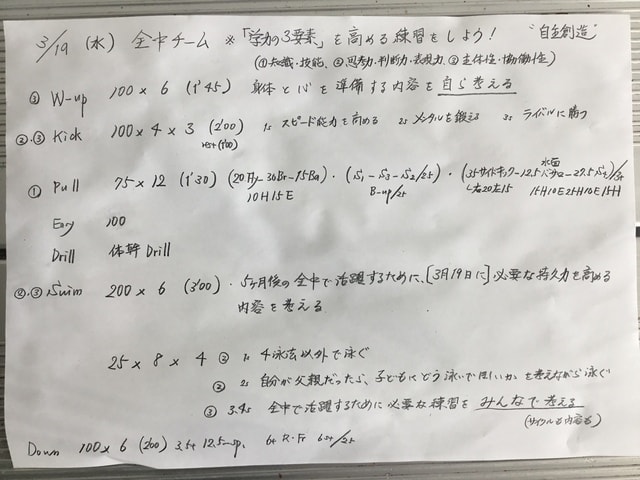 3/19 (水) 全中チーム ※「学力の3要素」を高める練習をしよう! "自主創造"
(①知識・技能、②思考力・判断力・表現力、③主体性・協働性)
③ W-up 100×6 (1'45) 身体と心を準備する内容を自ら考える
②.③ Kick 100×4×3 (2'00) 1s スピード能力を高める 2s メンタルを鍛える 3s ライバルに勝つ
rest(1'00)
① Pull 75×12 (1'30) (20Fly-30Br-25Ba)・(S1-S3-S2/25)・(35サイドキック-12.5水面バタフロー-27.5
10H15E B-up/25 L右20左15 15H10E25H10E15H
Easy 100
Drill 体幹Drill
②.③ Swim 200×6 (3'00)・5ヶ月後の全中で活躍するために、[3月19日に]必要な持久力を高める
内容を考える
25×8×4 ② 1s 4泳法以外で泳ぐ
② 2s 自分が父親だったら、子どもにどう泳いでほしいかを考えながら泳ぐ
③ 3.4s 全中で活躍するために必要な練習をみんなで考える
(サイクルも内容も)
Down 100×6 (2'00) 12.5